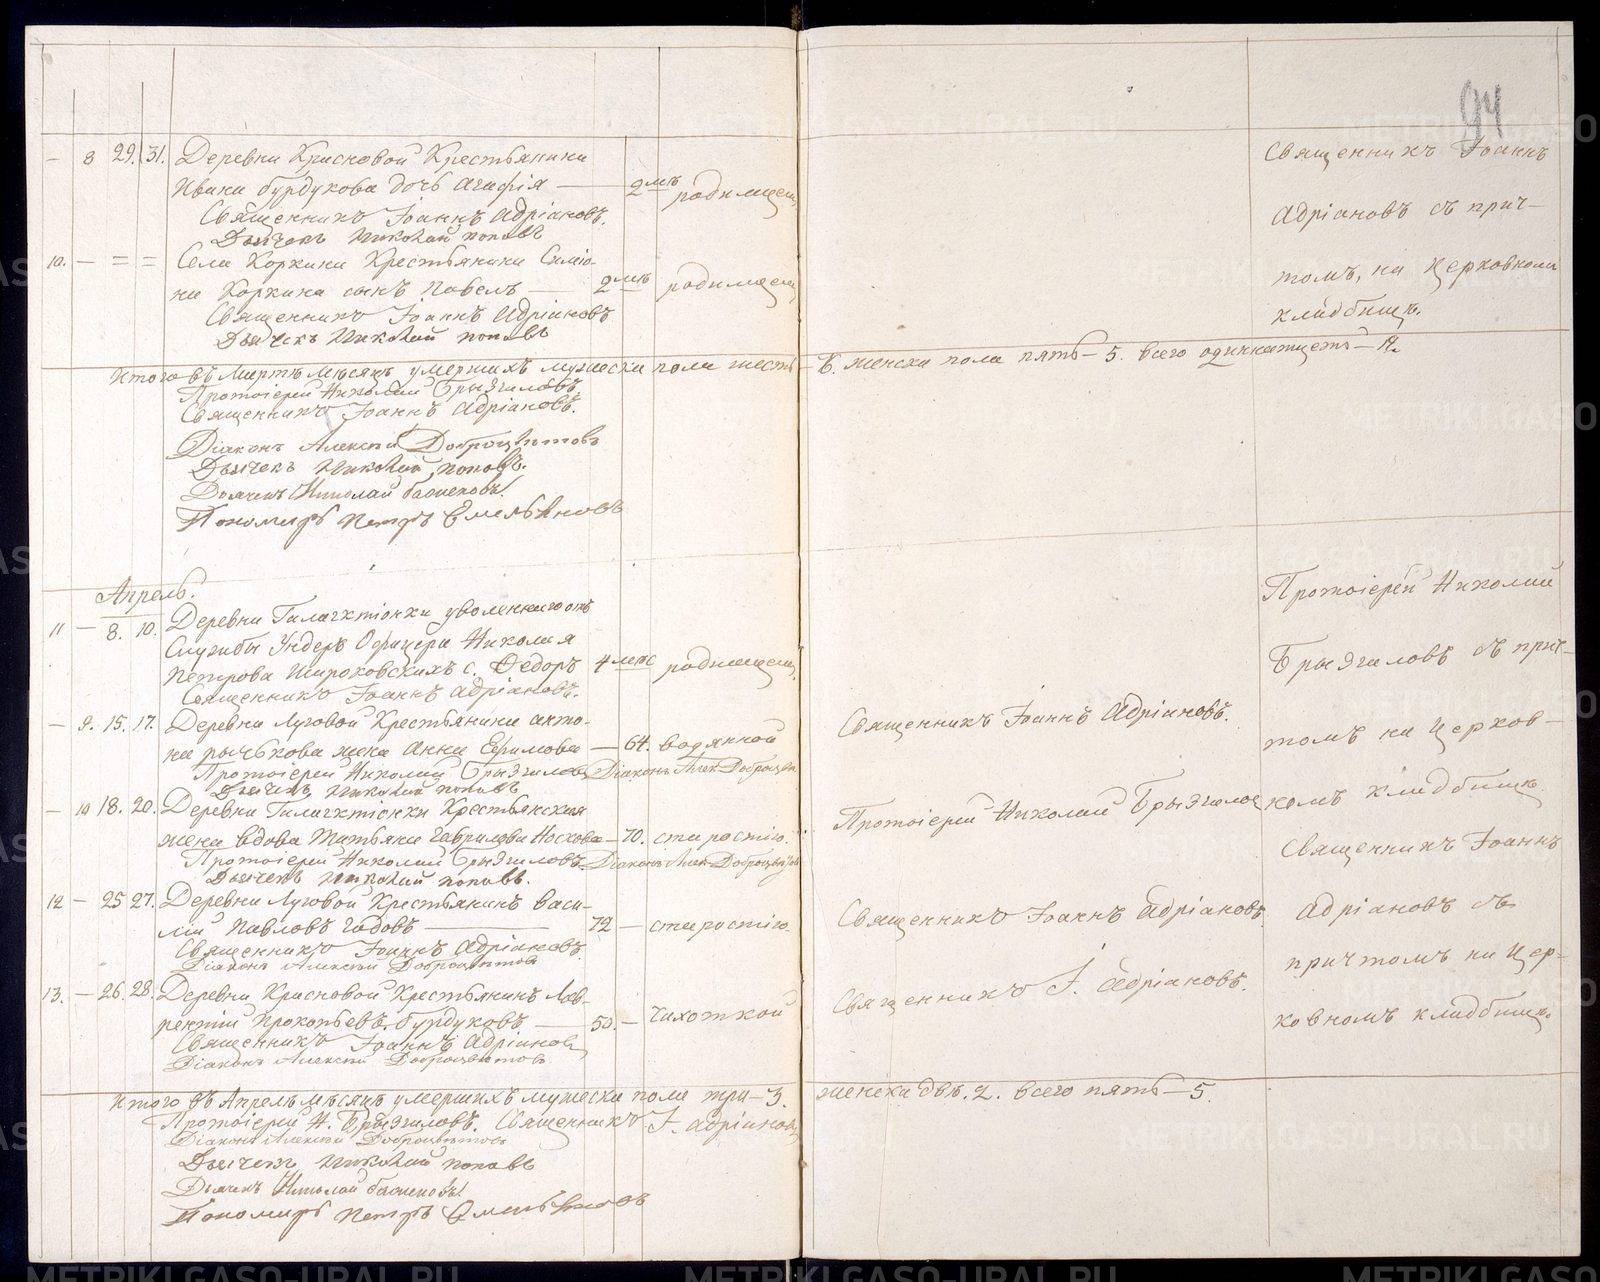 94
— 8 29. 31. Деревни Красновой Крестьянина
Ивана бурдукова дочь агафія — 2 мѣс родимцем
Священникъ Іоаннъ Адріановъ.
Дьячекъ Николай поповъ
10. — = = Села Коркина Крестьянина Симіо-
на Коркина сынъ Павелъ — 2 мѣс родимцем
Священникъ Іоаннъ Адріановъ
Дьячекъ Николай поповъ
Священникъ Іоаннъ
Адріановъ съ прич-
томъ, на Церковном
кладбищѣ.
Итого въ Мартѣ мѣсяцѣ умершихъ мужеска пола шесть — 6. женска пола пять — 5. всего одиннатцеть — 11.
Протоіерей Николай Брызгаловъ
Священникъ Іоаннъ Адріановъ.
Діаконъ Алексѣй Доброцвѣтовъ
Дьячекъ Николай поповъ.
Дьячекъ Николай
Пономарь Петръ Емельяновъ
Апрель.
11 — 8. 10. Деревни Галактіонки уволеннаго отъ
Службы Ундеръ Офицера Николая
Петрова Широковскихъ с. Ѳедоръ 4 мѣс родимцем
Священникъ Іоаннъ Адріановъ.
— 9. 15. 17. Деревни Луговой Крестьянина анто-
на рычкова жена Анна Ефимова — 64. водянкой
Протоіерей Николай Брызгалов Діаконъ Алек Доброцвѣт
Дьячекъ Николай поповъ
— 10 18. 20. Деревни Галактіонки Крестьянская
жена вдова Татьяна Гаврилова Носкова — 70. старостію.
Протоіерей Николай Брызгаловъ. Діаконъ Алек Доброцвѣтов
Дьячекъ Николай поповъ.
12 — 25 27. Деревни Луговой Крестьянинъ Васи-
лій Павловъ Гадовъ — 72 — старостію.
Священникъ Іоаннъ Адріановъ
Діаконъ Алексѣй Доброцвѣтов
13. — 26. 28. Деревни Красновой Крестьянинъ Лав-
рентій Прокопьевъ бурдуковъ — 50. — Чихоткой
Священникъ Іоаннъ Адріановъ
Діаконъ Алексѣй Доброцвѣтов
Священникъ Іоаннъ Адріановъ.
Протоіерей Николай Брызгалов
Священникъ Іоаннъ Адріановъ
Священникъ І. Адріановъ.
Протоіерей Николай
Брызгаловъ съ прич-
томъ на Церков-
номъ кладбищѣ.
Священникъ Іоаннъ
Адріановъ съ
причтомъ на Цер-
ковномъ кладбищѣ.
Итого въ Апрелѣ мѣсяцѣ умершихъ мужеска пола три — 3. женска двѣ. 2. всего пять — 5.
Протоіерей Н. Брызгаловъ. Священникъ І. Адріановъ
Діаконъ Алексѣй Доброцвѣтов
Дьячекъ Николай поповъ
Дьячекъ Николай
Пономарь Петръ Емельяновъ
METRIKI.GASO-URAL.RU